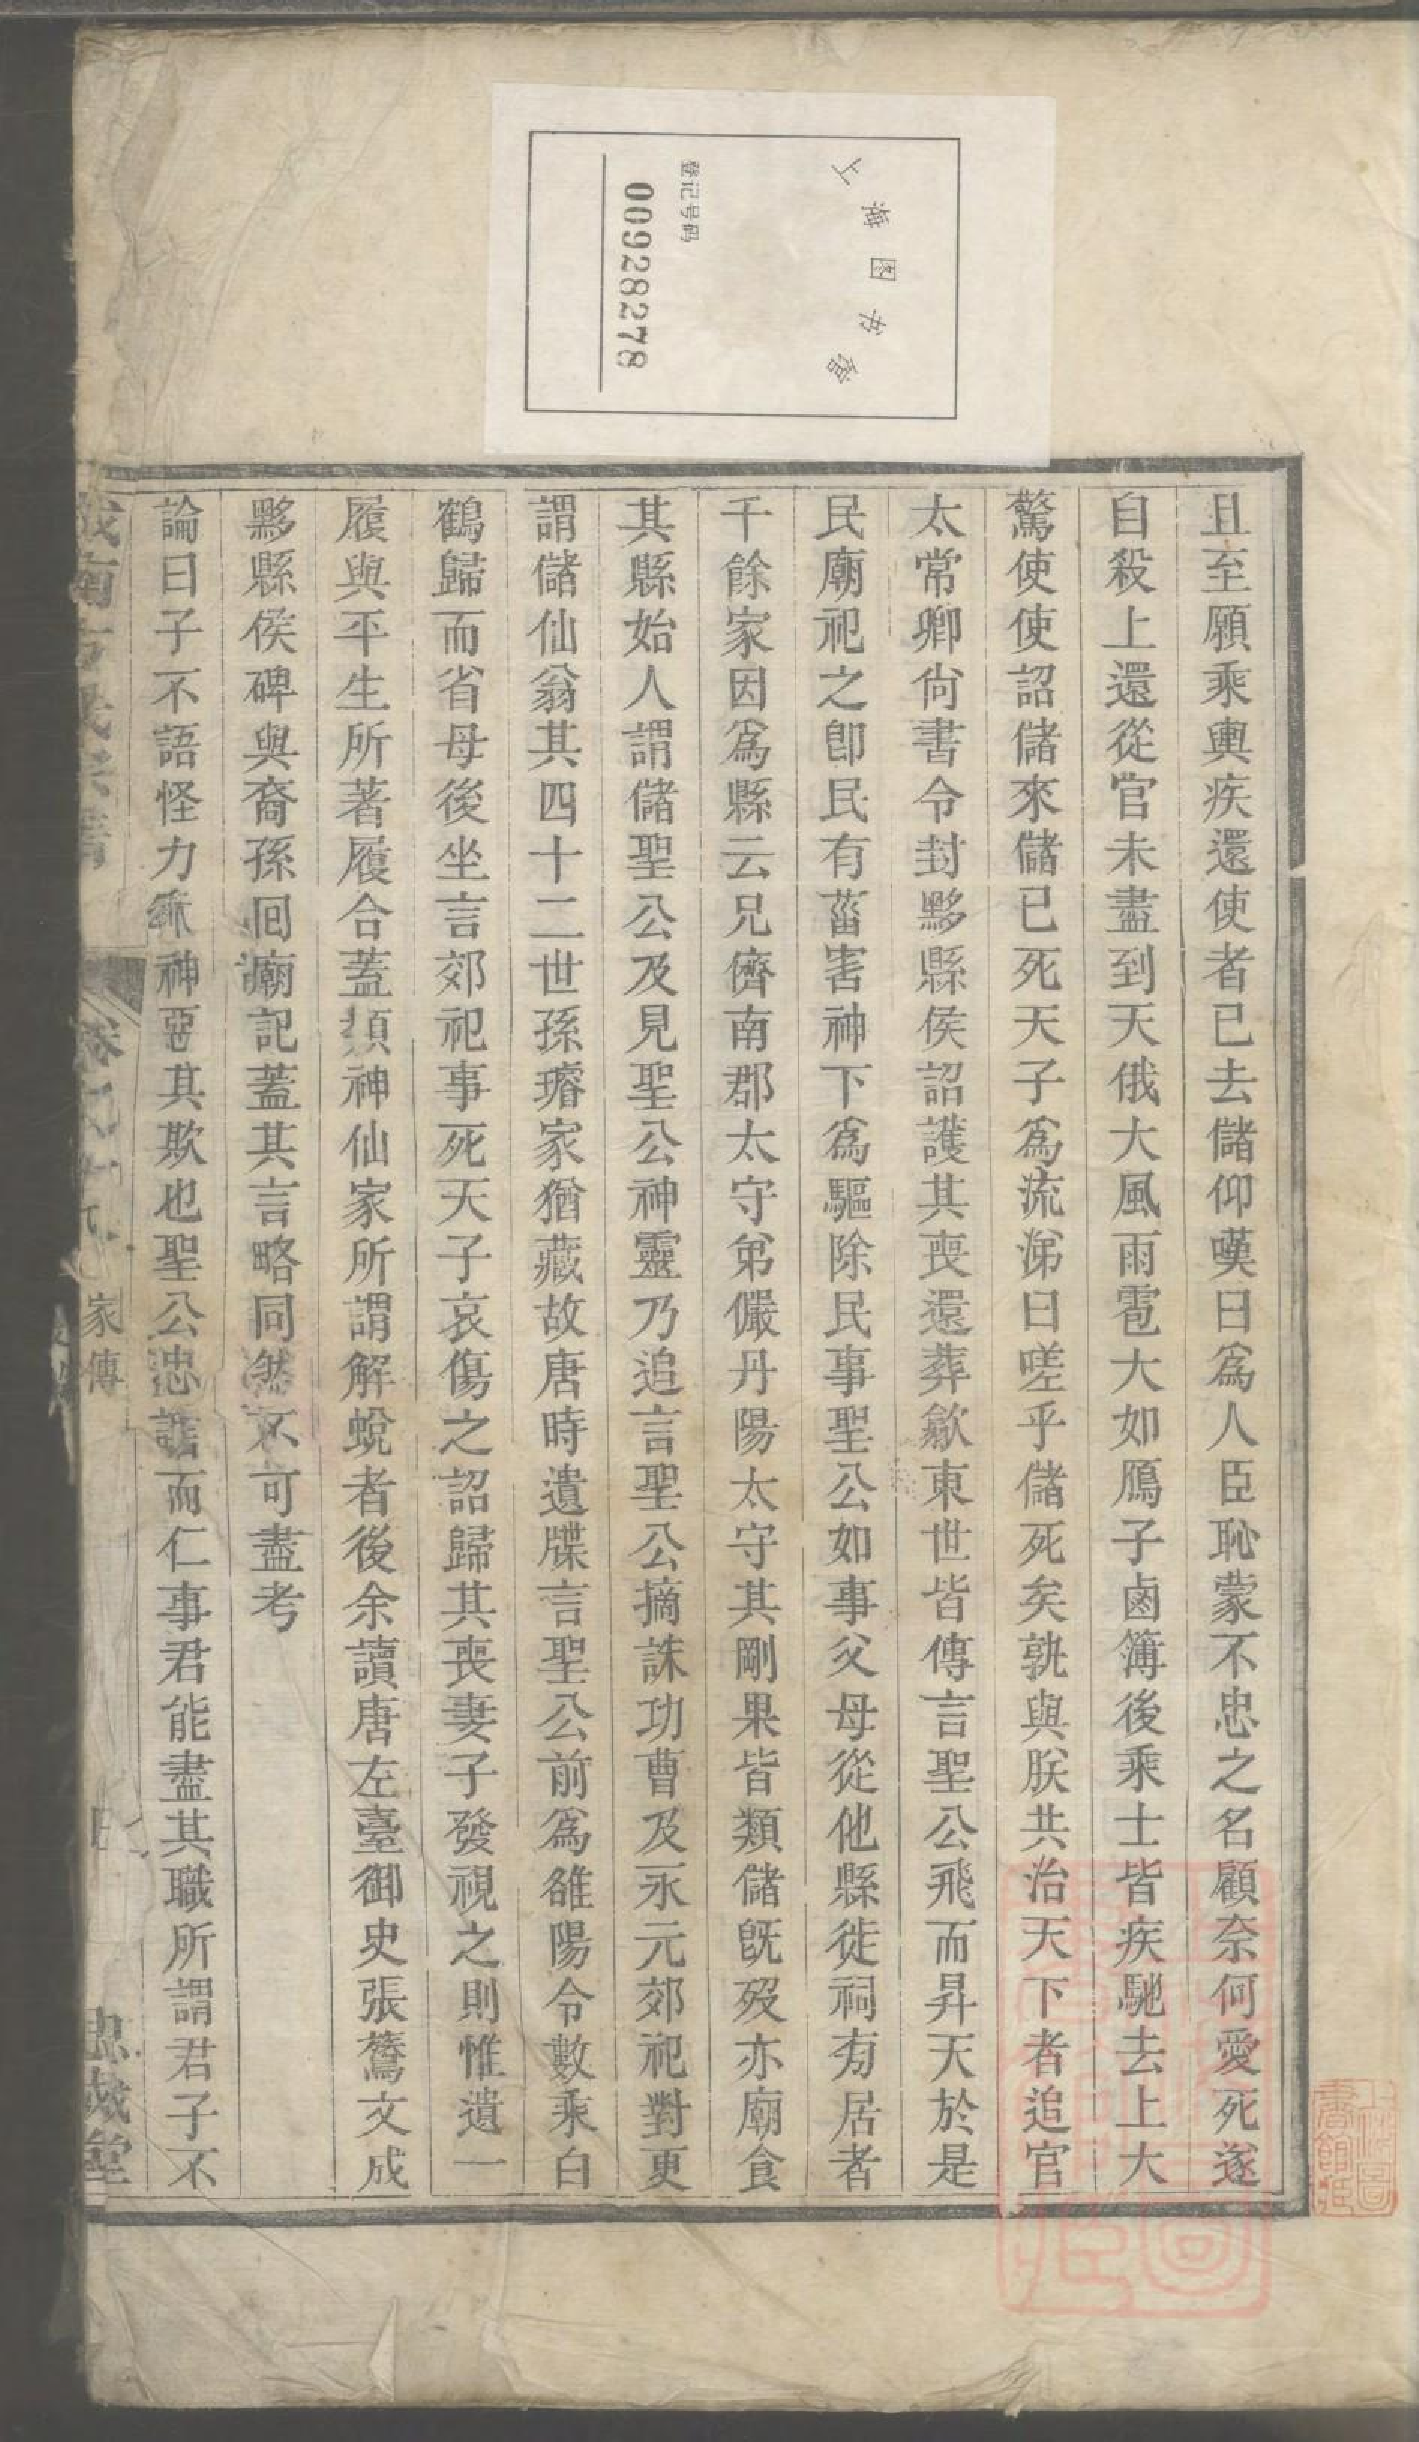 上海图书馆
登记号码
00928278
且至願乘輿疾還使者已去儲仰嘆曰爲人臣恥蒙不忠之名顧奈何愛死遂
自殺上還從官未盡到天俄大風雨雹大如鴈子鹵簿後乘士皆疾馳去上大
驚使使詔儲來儲已死天子爲流涕曰嗟乎儲死矣孰與朕共治天下者追官
太常卿尙書令封黟縣侯詔護其喪還葬歙東世皆傳言聖公飛而昇天於是
民廟祀之卽民有菑害神下爲驅除民事聖公如事父母從他縣徙祠旁居者
千餘家因爲縣云兄儕南郡太守弟儼丹陽太守其剛果皆類儲旣歿亦廟食
其縣始人謂儲聖公及見聖公神靈乃追言聖公摘誅功曹及永元郊祀對更
謂儲仙翁其四十二世孫璿家猶藏故唐時遺牒言聖公前爲雒陽令數乘白
鶴歸而省母後坐言郊祀事死天子哀傷之詔歸其喪妻子發視之則惟遺一
履與平生所著履合蓋類神仙家所謂解蛻者後余讀唐左臺御史張鷟文成
黟縣侯碑與裔孫囘廟記蓋其言略同然不可盡考
論曰子不語怪力亂神惡其欺也聖公忠誥而仁事君能盡其職所謂君子不
家傳
忠誠堂
上海圖書館藏
上海圖書館藏